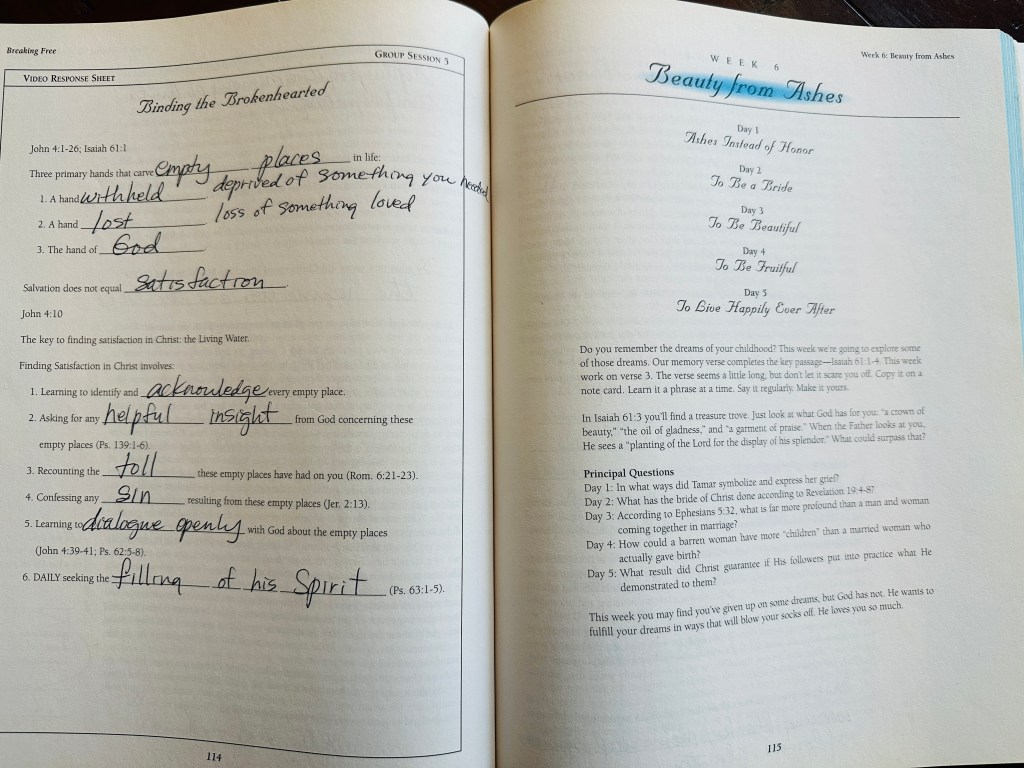 Breaking Free
GROUP SESSION 5
VIDEO RESPONSE SHEET
Binding the Brokenhearted
John 4:1-26; Isaiah 61:1
Three primary hands that carve empty places in life:
1. A hand withheld deprived of something you needed
2. A hand lost loss of something loved
3. The hand of God
Salvation does not equal satisfaction
John 4:10
The key to finding satisfaction in Christ: the Living Water.
Finding Satisfaction in Christ involves:
1. Learning to identify and acknowledge every empty place.
2. Asking for any helpful insight from God concerning these
empty places (Ps. 139:1-6).
3. Recounting the toll these empty places have had on you (Rom. 6:21-23).
4. Confessing any sin resulting from these empty places (Jer. 2:13).
5. Learning to dialogue openly with God about the empty places
(John 4:39-41; Ps. 62:5-8).
6. DAILY seeking the filling of his Spirit (Ps. 63:1-5).
114
Week 6: Beauty from Ashes
WEEK 6
Beauty from Ashes
Day 1
Ashes Instead of Honor
Day 2
To Be a Bride
Day 3
To Be Beautiful
Day 4
To Be Fruitful
Day 5
To Live Happily Ever After
Do you remember the dreams of your childhood? This week we're going to explore some
of those dreams. Our memory verse completes the key passage—Isaiah 61:1-4. This week
work on verse 3. The verse seems a little long, but don't let it scare you off. Copy it on a
note card. Learn it a phrase at a time. Say it regularly. Make it yours.
In Isaiah 61:3 you'll find a treasure trove. Just look at what God has for you: "a crown of
beauty," "the oil of gladness," and "a garment of praise." When the Father looks at you,
He sees a "planting of the Lord for the display of his splendor." What could surpass that?
Principal Questions
Day 1: In what ways did Tamar symbolize and express her grief?
Day 2: What has the bride of Christ done according to Revelation 19:4-8?
Day 3: According to Ephesians 5:32, what is far more profound than a man and woman
coming together in marriage?
Day 4: How could a barren woman have more "children" than a married woman who
actually gave birth?
Day 5: What result did Christ guarantee if His followers put into practice what He
demonstrated to them?
This week you may find you've given up on some dreams, but God has not. He wants to
fulfill your dreams in ways that will blow your socks off. He loves you so much.
115